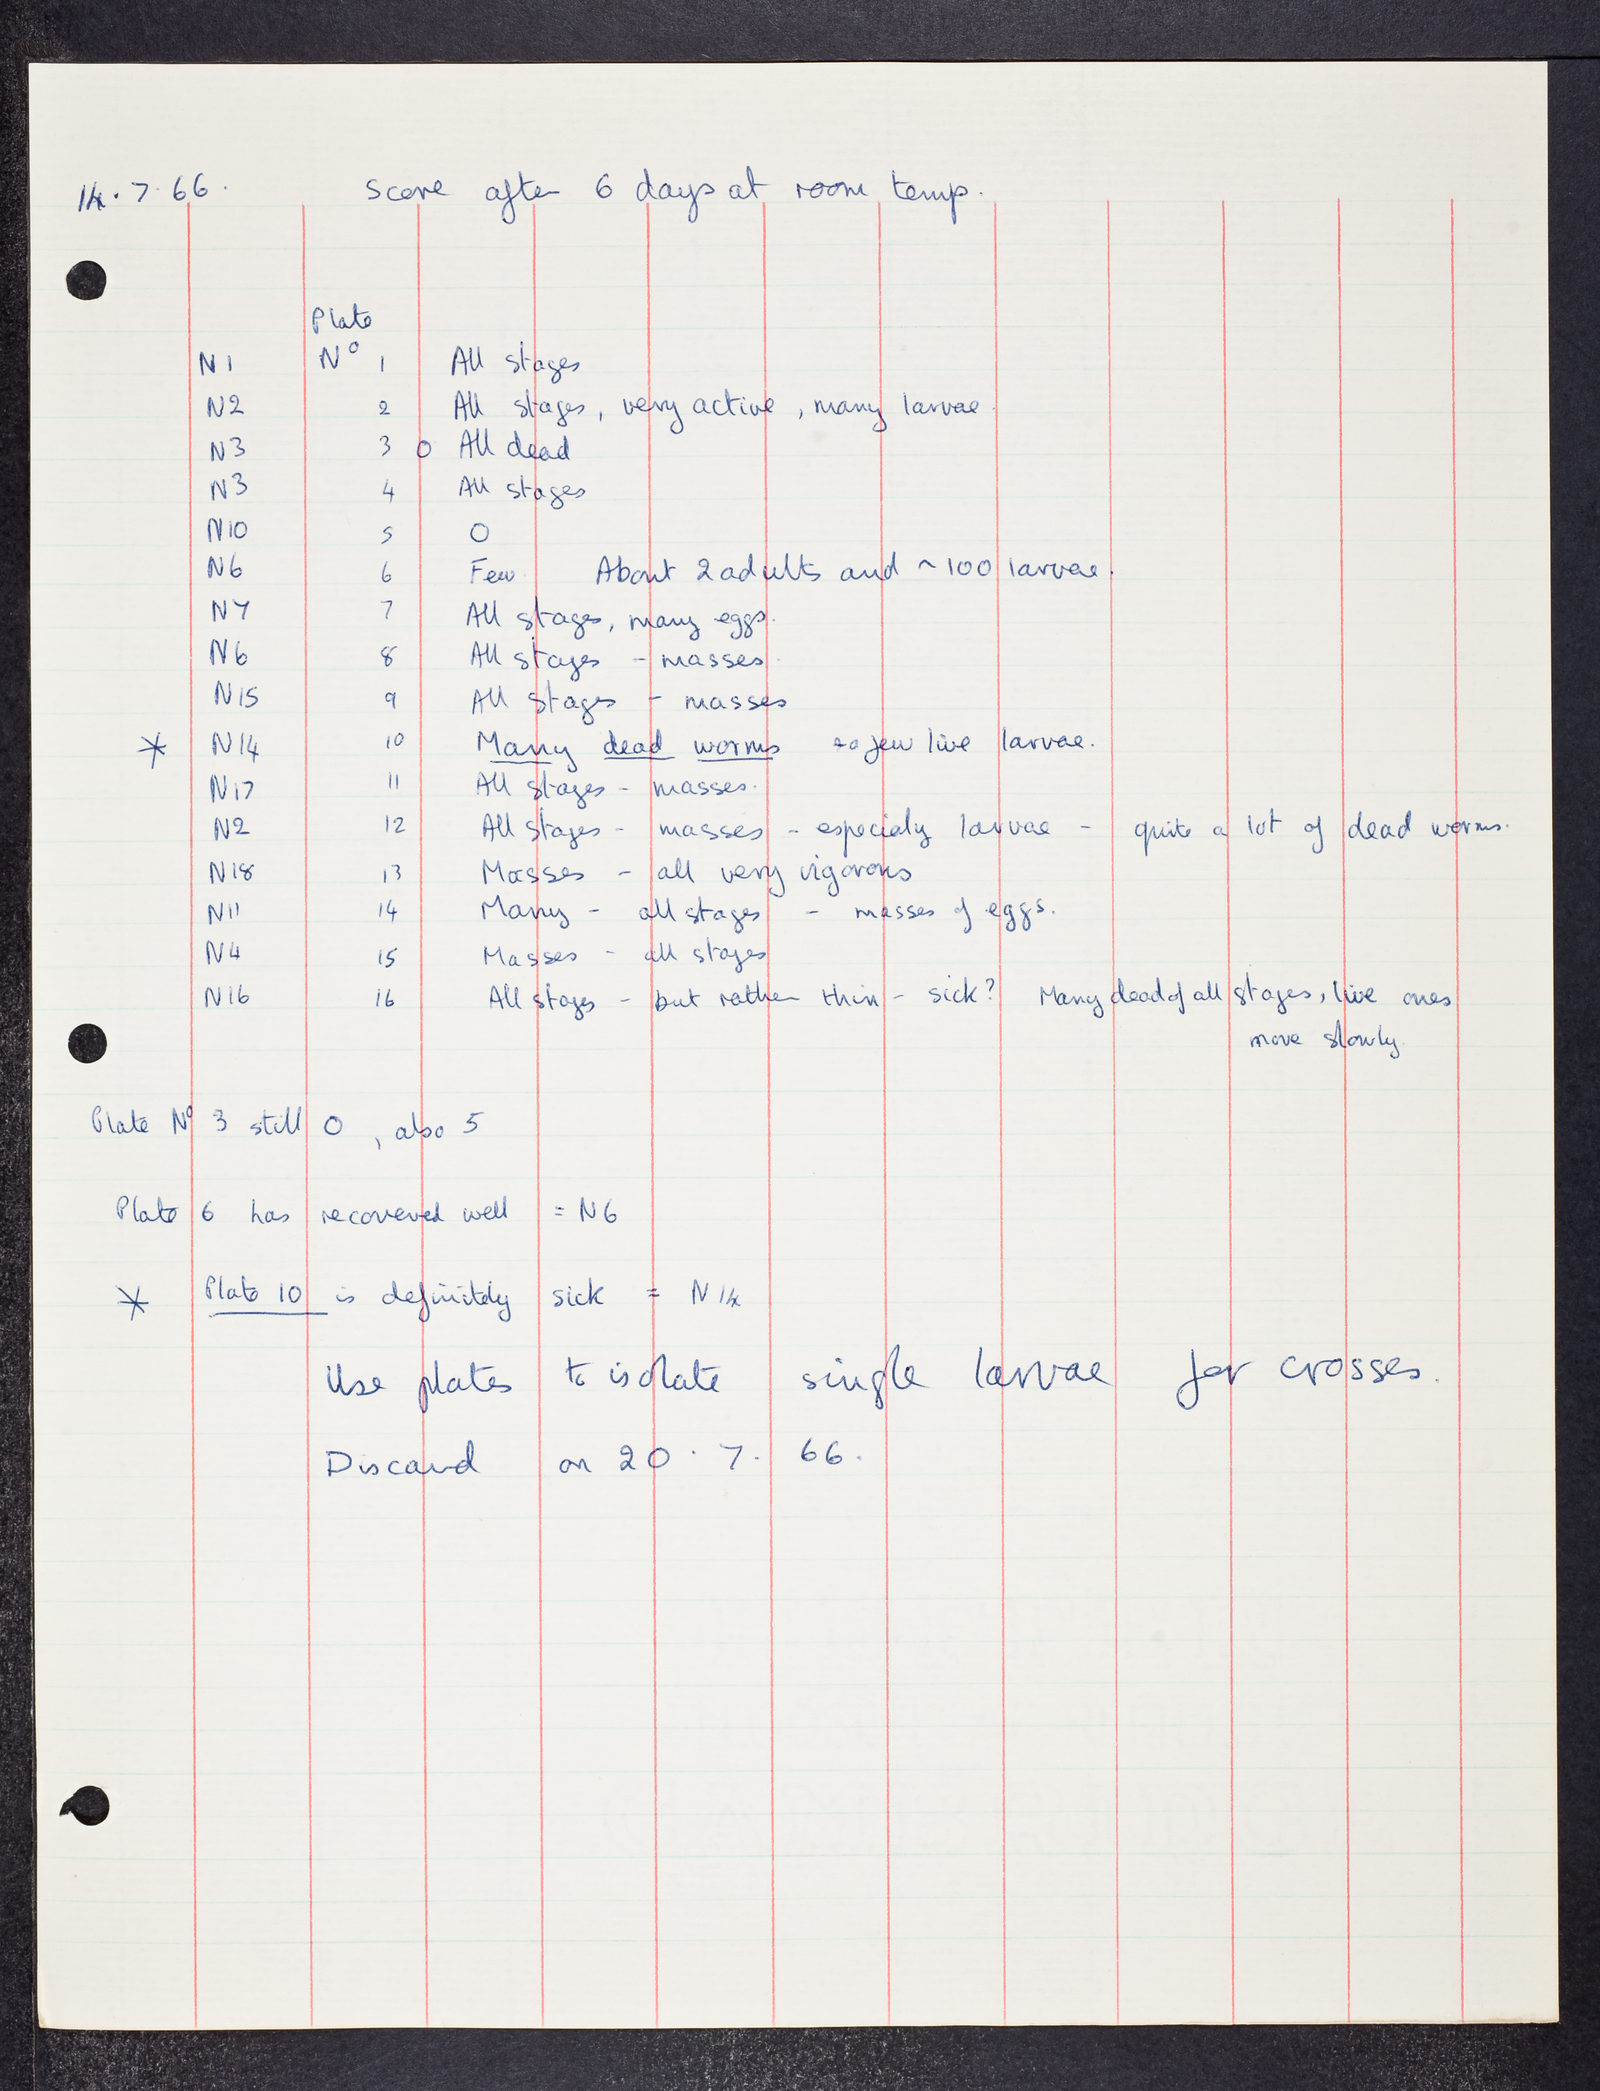 14.7.66. Score after 6 days at room temp.
Plate
N1 Nº 1 All stages
N2 2 All stages, very active, many larvae.
N3 3 0 All dead
N3 4 All stages
N10 5 0
N6 6 Few. About 2 adults and ~100 larvae.
N7 7 All stages, many eggs.
N6 8 All stages - masses.
N15 9 All stages - masses
* N14 10 Many dead worms few live larvae.
N17 11 All stages - masses.
N2 12 All stages - masses - especialy larvae - quite a lot of dead worms.
N18 13 Masses - all very vigorous
N11 14 Many - all stages - masses of eggs.
N4 15 Masses - all stages
N16 16 All stages - but rather thin - sick? Many dead of all stages, live ones
move slowly.
Plate Nº 3 still 0, also 5
Plate 6 has recovered well = N6
* Plate 10 is definitely sick = N14
Use plates to isolate single larvae for crosses.
Discard on 20.7.66.